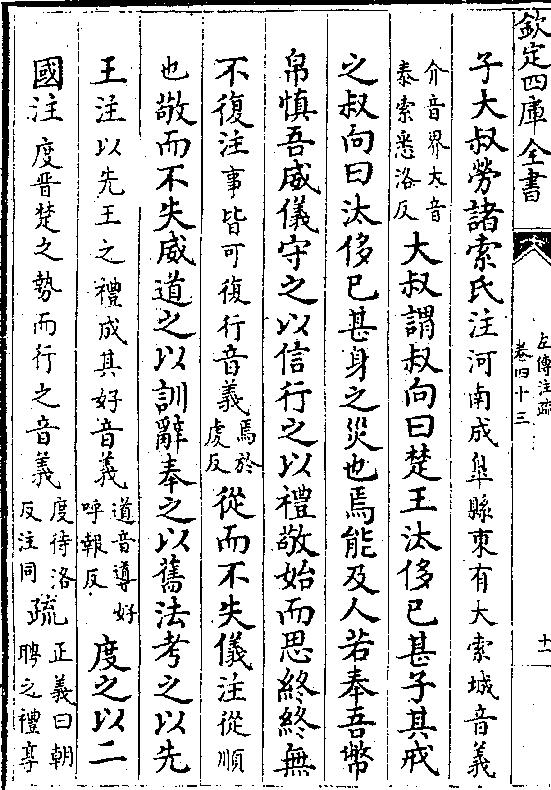 欽定四庫全書
左傳注疏
卷四十三
十一
子大叔勞諸索氏注河南成臯縣東有大索城音義
介音界大音
泰索悉洛反
大叔謂叔向曰楚王汰侈已甚子其戒
之叔向曰汰侈已甚身之災也焉能及人若奉吾幣
帛慎吾威儀守之以信行之以禮敬始而思終終無
不復注事皆可復行音義
焉於
虔反
從而不失儀注從順
也敬而不失威道之以訓辭奉之以舊法考之以先
王注以先王之禮成其好音義
道音導好
呼報反
度之以二
國注度晋楚之勢而行之音義
度待洛
反注同
疏
正義曰朝
聘之禮享